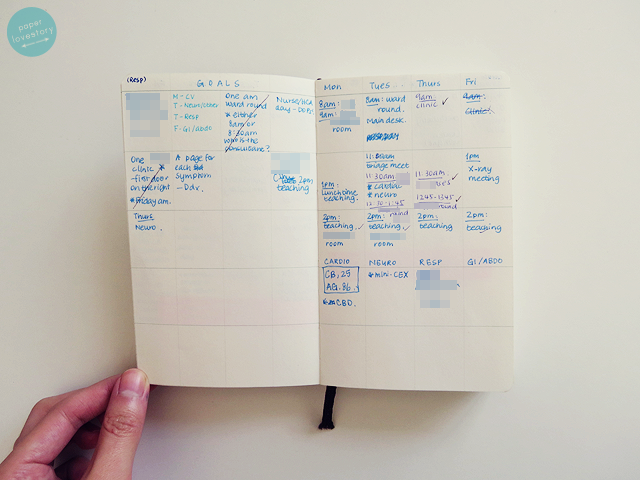 paper
lovestory
(RESP)
GOALS
M - CV
T - Neuro/other
T - Resp
F - GI/abdo
One am
ward round
* either
8am or
8:30am
who is the
consultant?
Nurse/HCA
day -
One
clinic *
- first door
on the right
* friday am.
A page for
each
symptom
- Ddx.
2pm
teaching
Thurs
Neuro.
Mon
Tues
Thurs
Fri
8am:
9am:
room
8am: ward
round.
Main desk.
9am:
clinic ✓
9am:
clinic.
1pm:
lunchtime
teaching.
11:00am
bridge meet
11:30am
* cardio
* neuro
11:30am:
12:45-13:45
1pm
X-ray
meeting
2pm:
teaching. ✓
room
2pm:
teaching. ✓
room
2pm:
teaching.
2pm:
teaching
CARDIO
NEURO
RESP
GI/ABDO
CB, 25
AG, 86.
CBD.
* mini-CEX